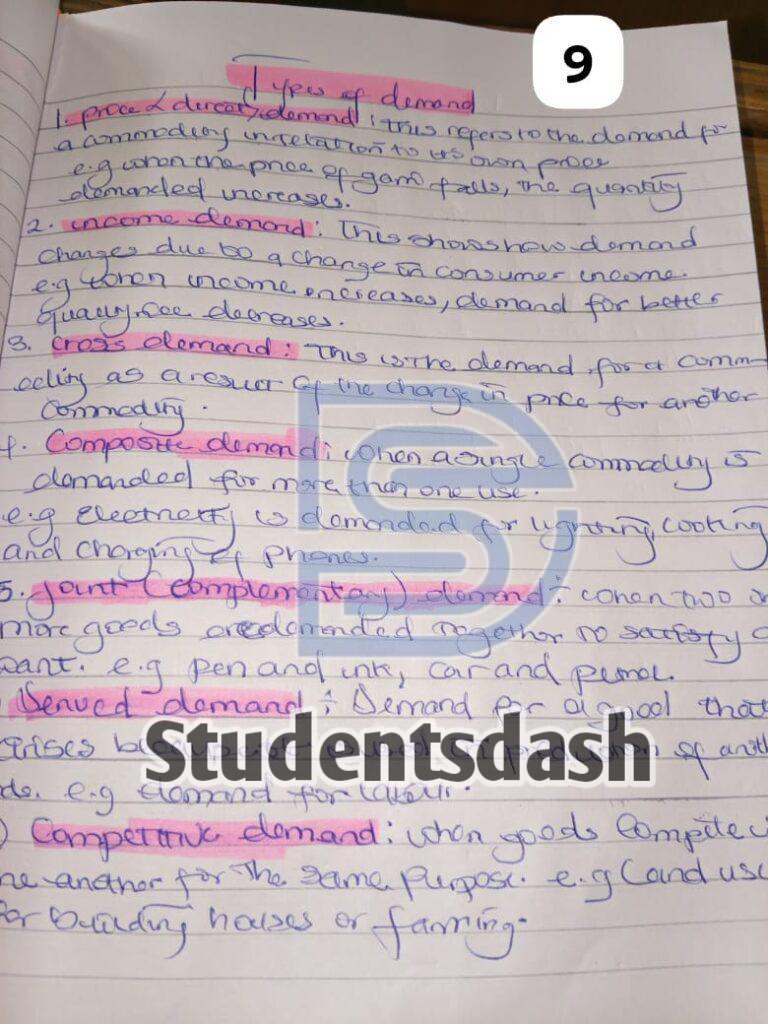 9
Types of demand
1. price / direct demand : This refers to the demand for
a commodity in relation to its own price
e.g when the price of garri falls, the quantity
demanded increases.
2. income demand : This shows how demand
changes due to a change in consumer income.
e.g when income increases, demand for better
quality rice decreases.
3. Cross demand : This is the demand for a comm-
odity as a result of the change in price for another
commodity.
4. Composite demand : when a single commodity is
demanded for more than one use.
e.g electricity is demanded for lighting, cooking
and charging of phones.
5. Joint (complementary) demand : when two or
more goods are demanded together to satisfy a
want. e.g pen and ink, car and petrol.
) Derived demand : Demand for a good that
arises because it is used in production of anoth
ds. e.g demand for labour.
Studentsdash
) Competitive demand : when goods compete w
ne another for the same purpose. e.g Land use
for building houses or farming.